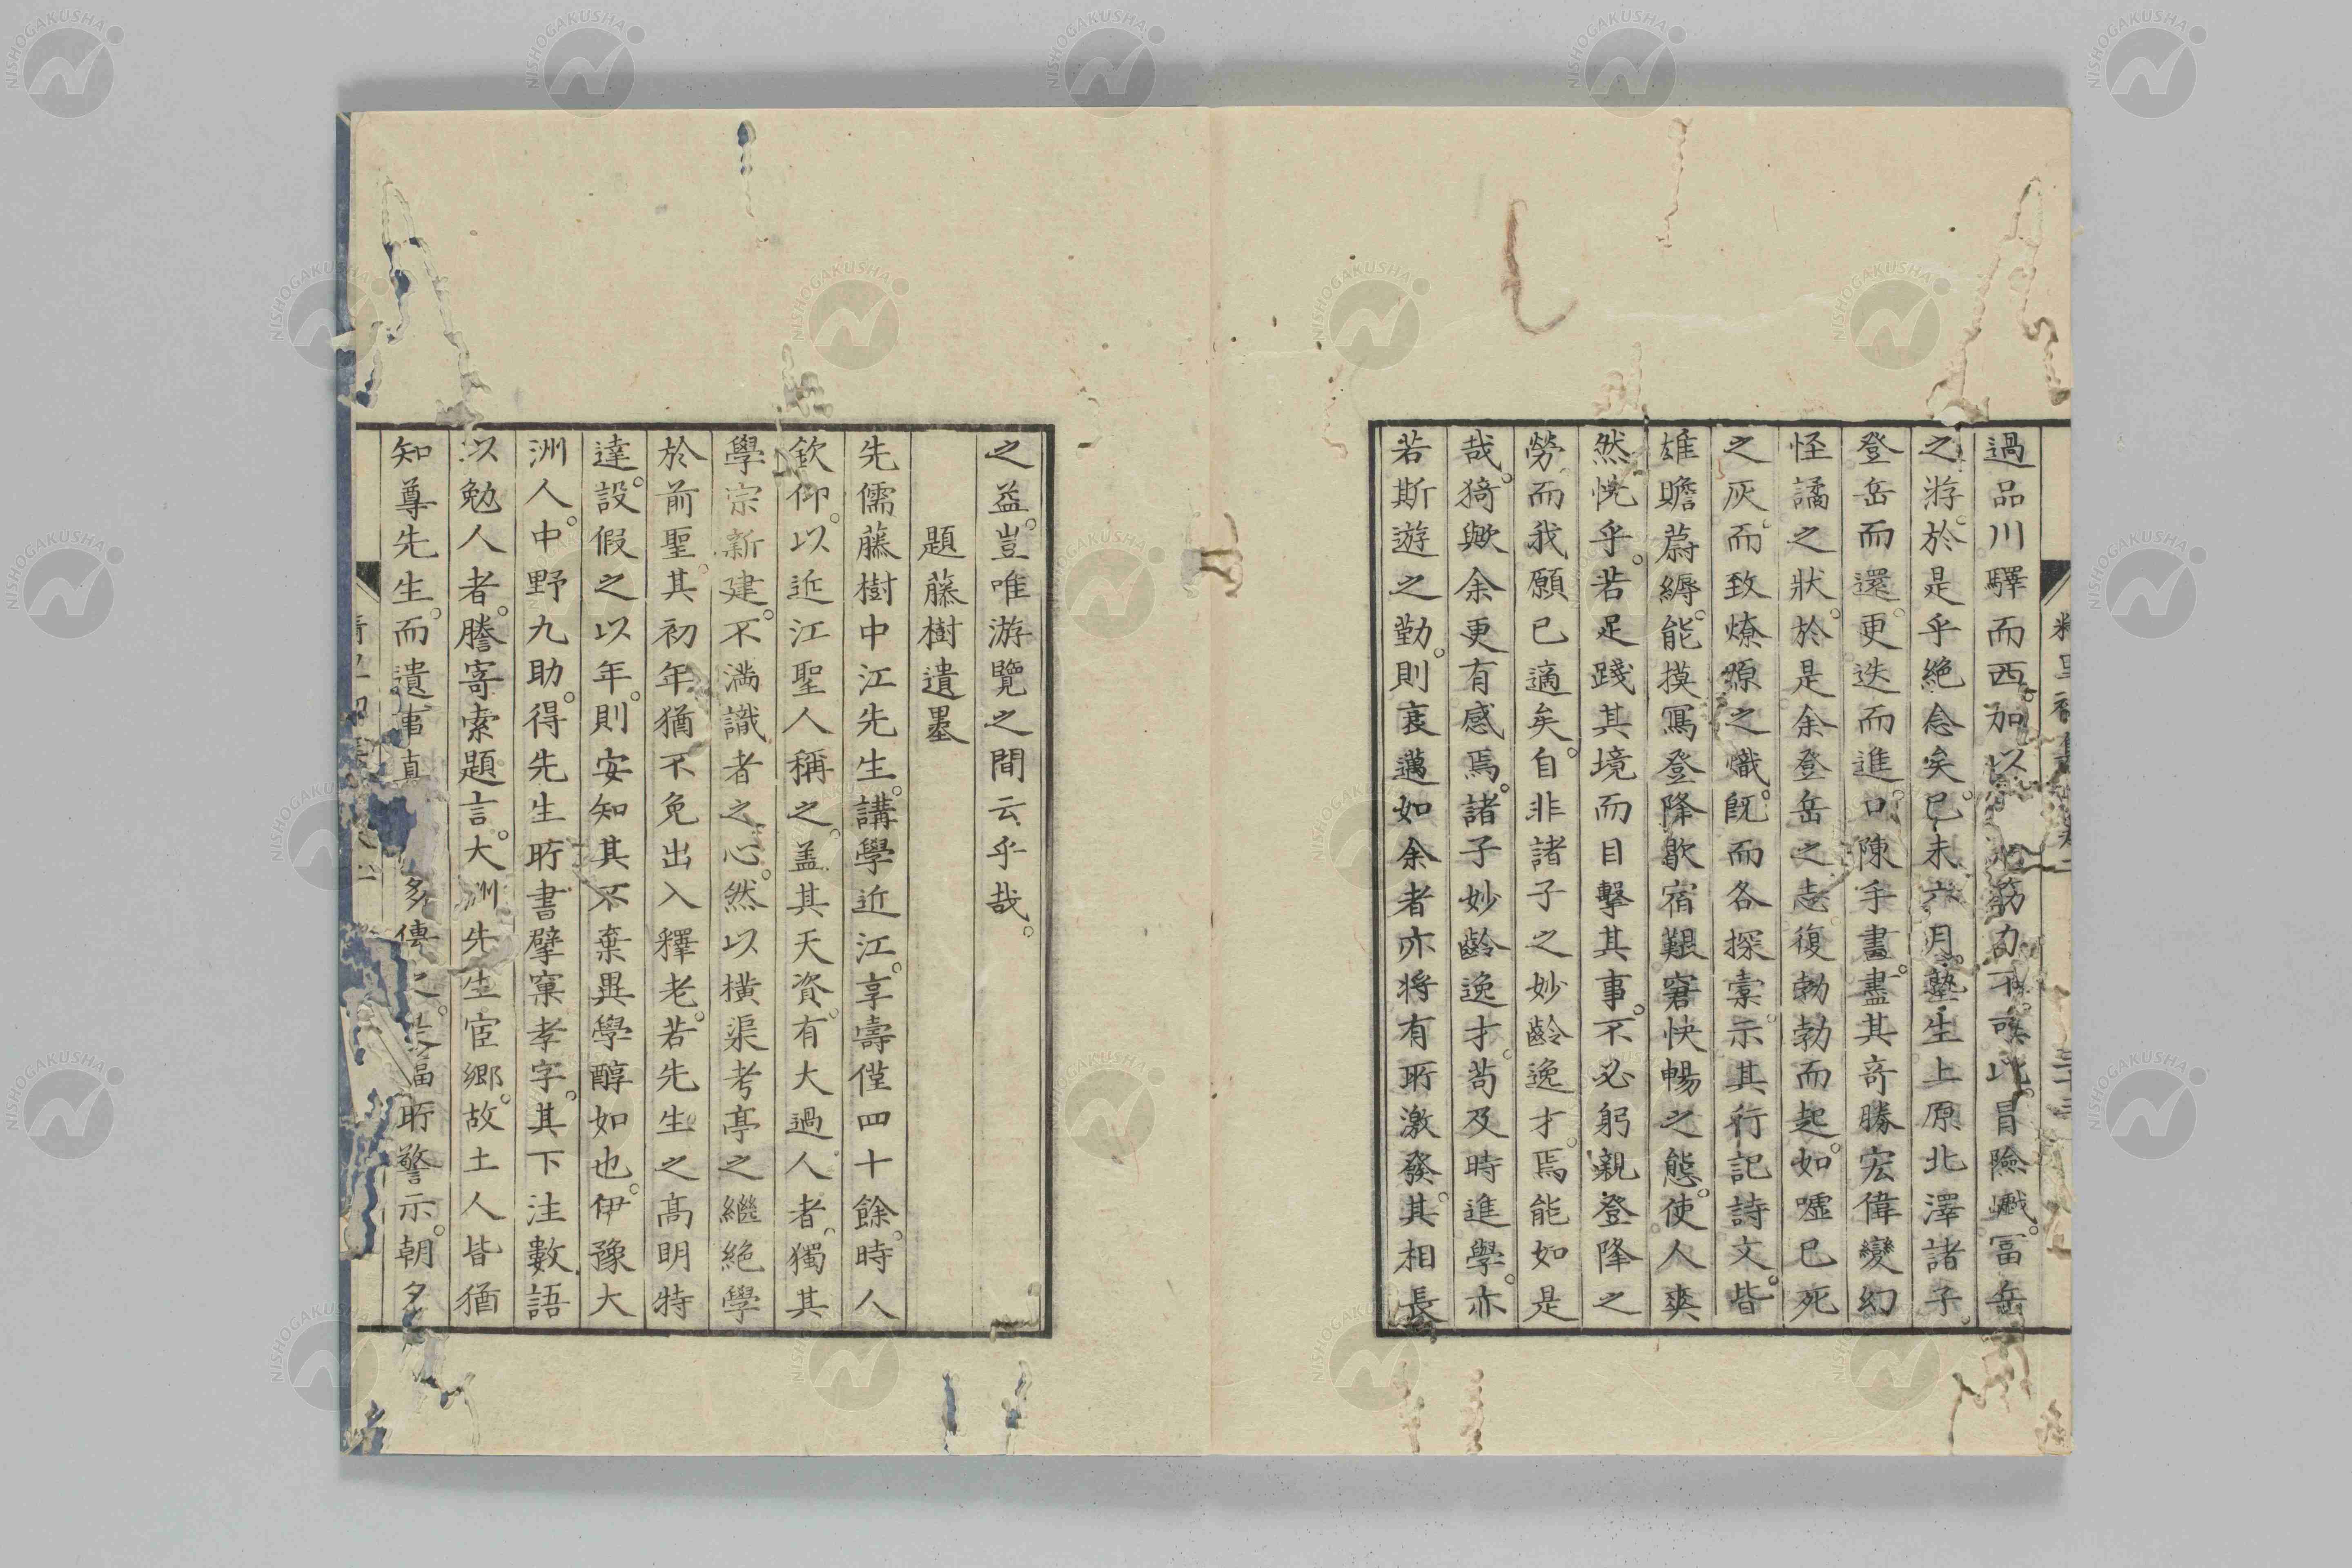 過品川驛而西。加以 筋力不。可此。冒險巇。冨岳
之游。於是乎絕念矣。已未六月。塾生上原北澤諸子。
登岳而還。更迭而進。口陳手畫。盡其奇勝宏偉變幻
怪譎之狀。於是余登岳之志。復勃勃而起。如噓已死
之灰。而致燎原之熾。旣而各探橐。示其行記詩文。皆
雄贍蔚縟。能摸寫登降歇宿艱窘快暢之態。使人爽
然怳乎。若足踐其境而目擊其事。不必躬親登降之
勞。而我願已適矣。自非諸子之妙齡逸才。焉能如是
哉。猗歟余更有感焉。諸子妙齡逸才。苟及時進學。亦
若斯遊之勤。則衰邁如余者。亦將有所激發。其相長
之益。豈唯游覽之間云乎哉。
題藤樹遺墨
先儒藤樹中江先生。講學近江。享壽僅四十餘。時人
欽仰。以近江聖人稱之。盖其天資。有大過人者。獨其
學宗新建。不滿識者之心。然以橫渠考亭之繼絕學
於前聖。其初年猶不免出入釋老。若先生之高明特
達。設假之以年。則安知其不棄異學醇如也。伊豫大
洲人。中野九助。得先生所書擘窠孝字。其下注數語
以勉人者。謄寄索題言。大洲先生宦鄉。故土人皆猶
知尊先生。而遺事真 多傳 所警示。朝夕